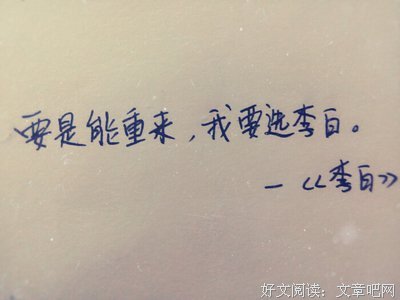 要是能重来，我要选李白。
—《李白》
好文阅读：文章吧网